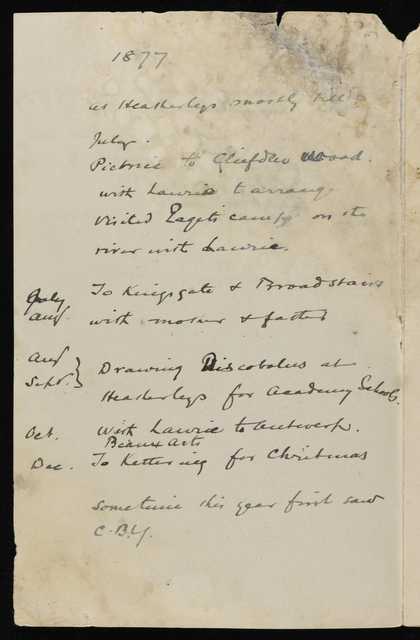 1877
at Heatherleys mostly till
July.
Picnic to Cliefden Wood.
with Laurie to arrange
Visited camp on the
river with Laurie.
July To Kingsgate & Broadstairs
Aug. with mother & father
Aug } Drawing Discobolus at
Sept. } Heatherleys for Academy Schools.
Oct. With Laurie to Antwerp.
Beaux Arts
Dec. To Kettering for Christmas
Sometime this year first saw